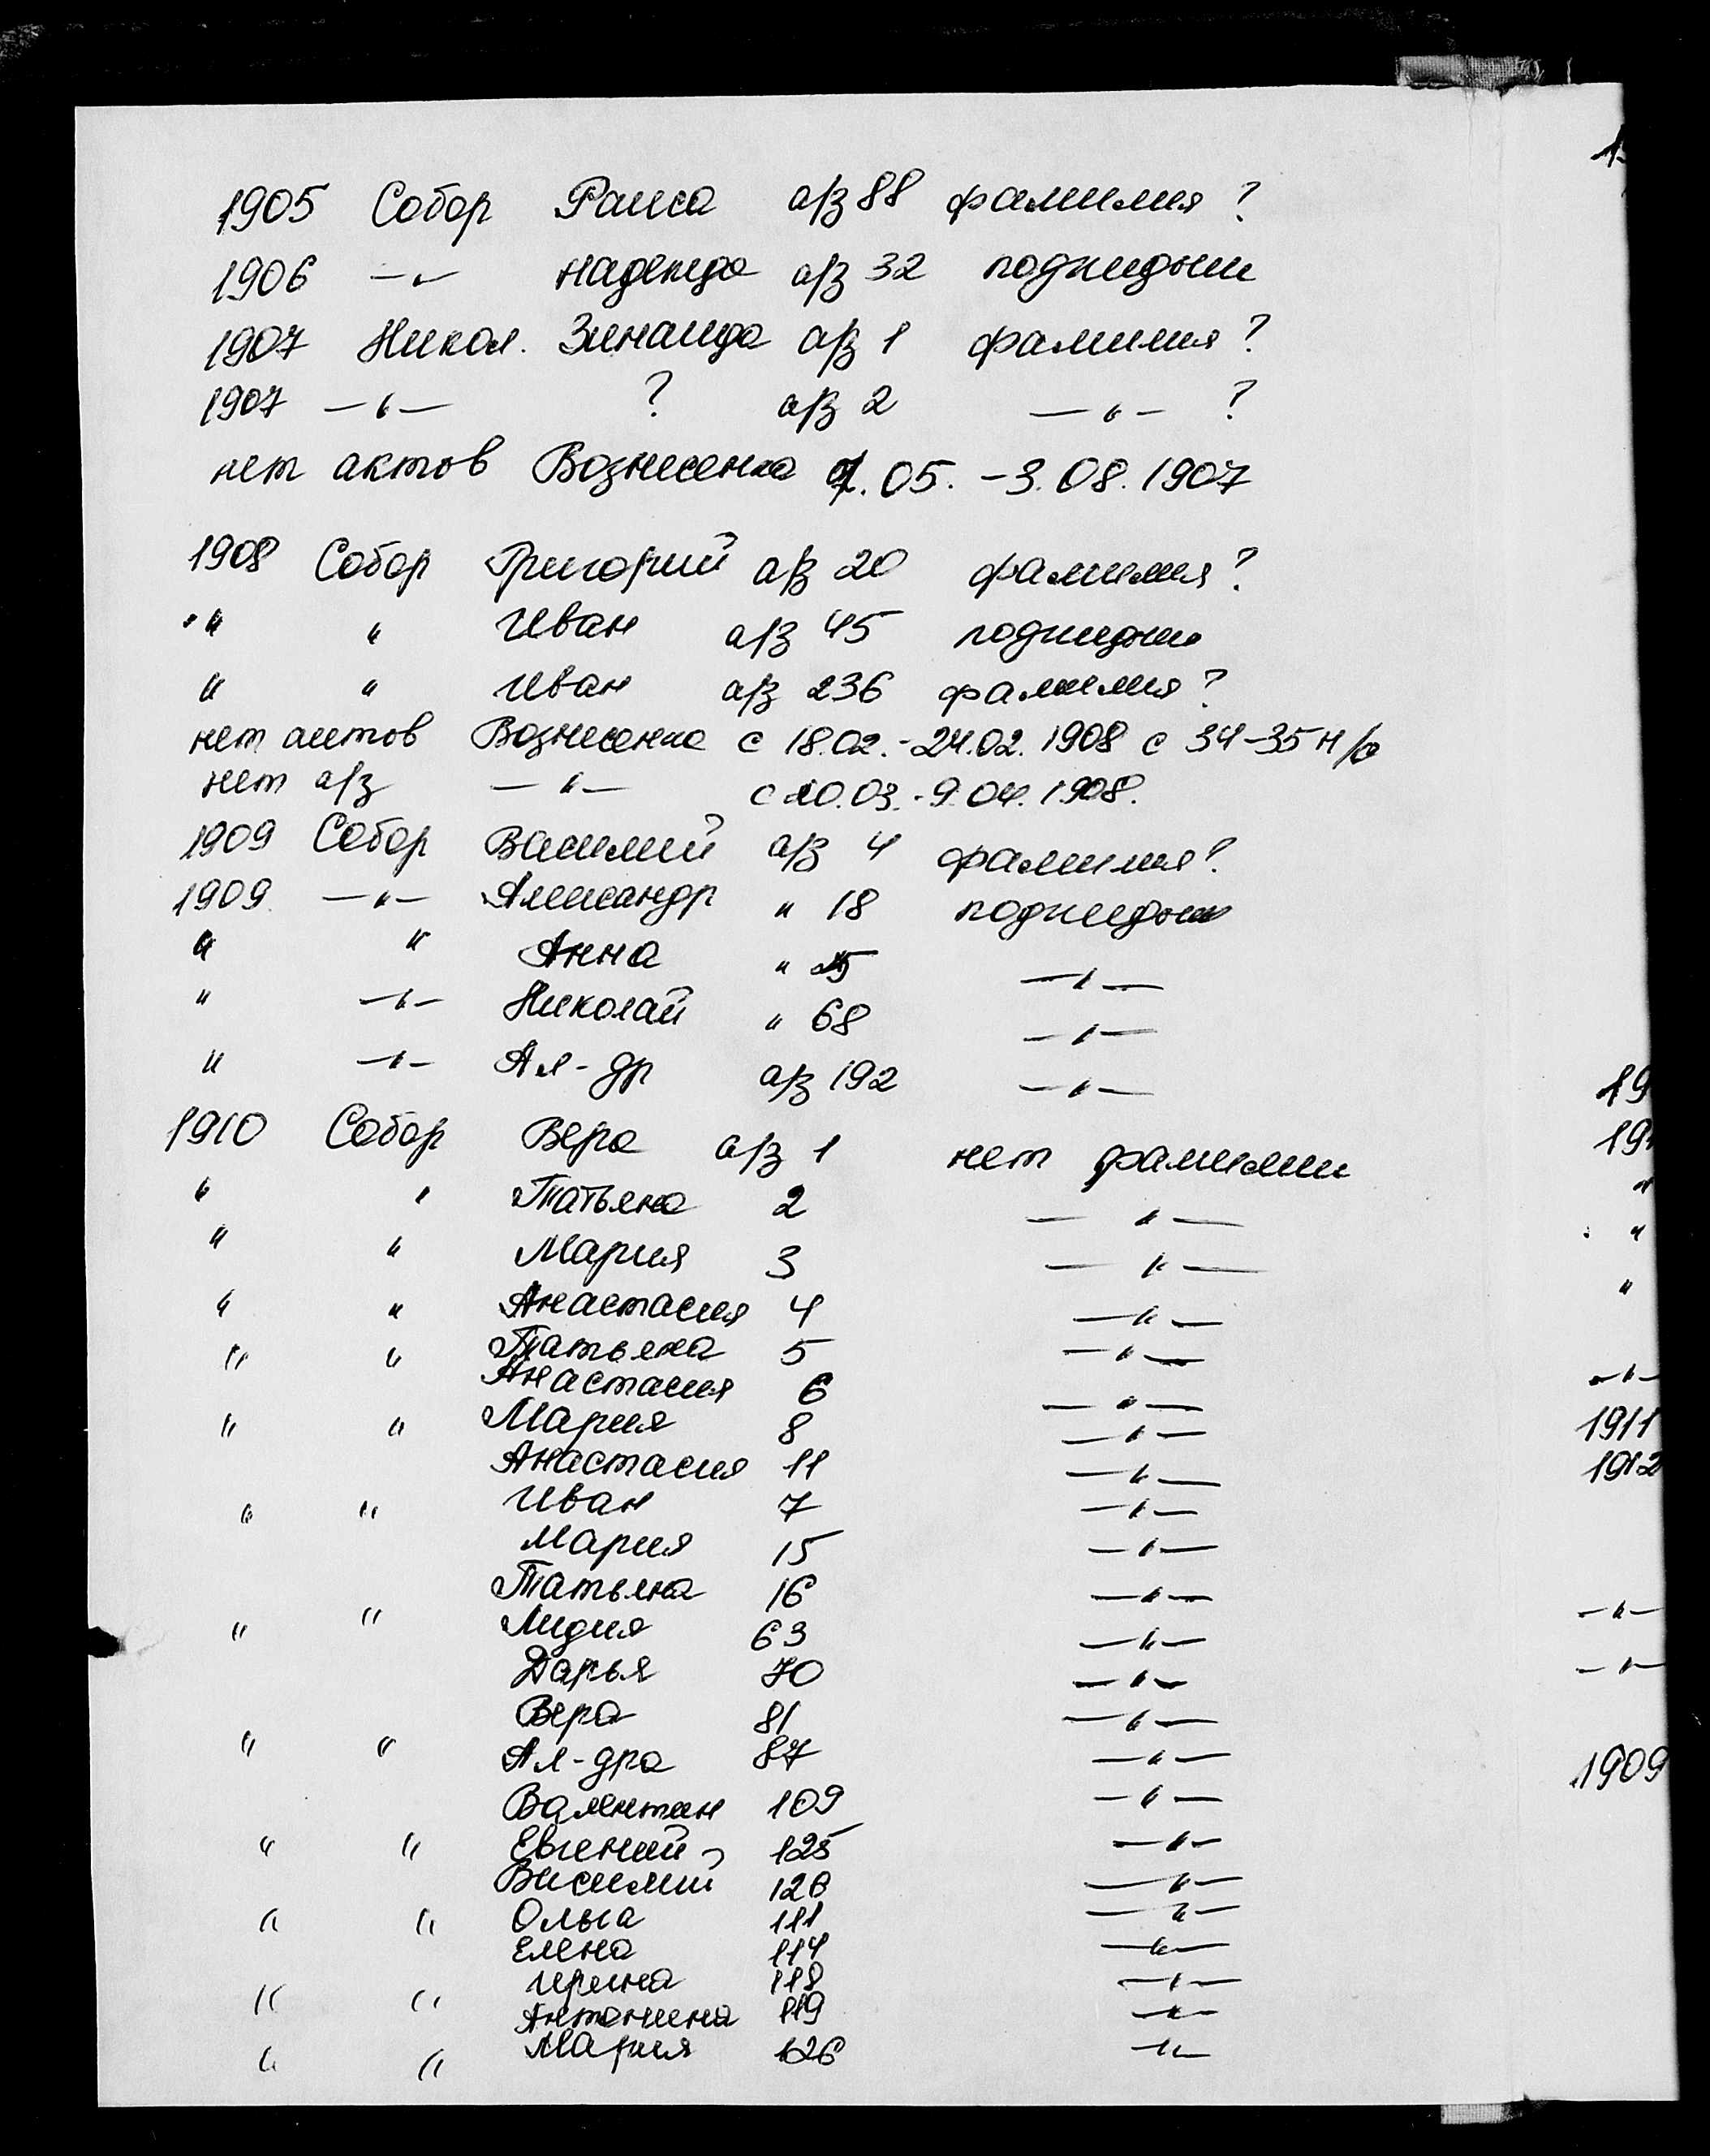 1905 Собор Раиса а/з 88 фамилия ?
1906 —"— Надежда а/з 32 подкидыш
1907 Никол. Зинаида а/з 1 фамилия ?
1907 —"— ? а/з 2 —"— ?
нет актов Вознесенка .05. – 3.08.1907
1908 Собор Григорий а/з 20 фамилия ?
" " Иван а/з 45 подкидыш
" " Иван а/з 236 фамилия ?
нет актов Вознесенка с 18.02.-24.02.1908 с 34-35 н/о
нет а/з —"— с 10.03.-9.04.1908.
1909 Собор Василий а/з 4 фамилия ?
1909 —"— Александр " 18 подкидыш
" " Анна " —"—
" —"— Николай " 68 —"—
" —"— Ал-др а/з 192 —"—
1910 Собор Вера а/з 1 нет фамилии
" " Татьяна 2 —"—
" " Мария 3 —"—
" " Анастасия 4 —"—
" " Татьяна 5 —"—
Анастасия 6 —"—
" " Мария 8 —"—
Анастасия 11 —"—
" " Иван 7 —"—
Мария 15 —"—
Татьяна 16 —"—
" " Лидия 63 —"—
Дарья 70 —"—
Вера 81 —"—
" " Ал-дра 87 —"—
Валентин 109 —"—
" " Евгений 125 —"—
Висилий 126 —"—
" " Ольга 111 —"—
Елена 114 —"—
Ирина 118 —"—
" " Антонина 119 —"—
" " Мария 126 —"—
19
19
"
"
"
—"—
1911
1912
—"—
—"—
1909